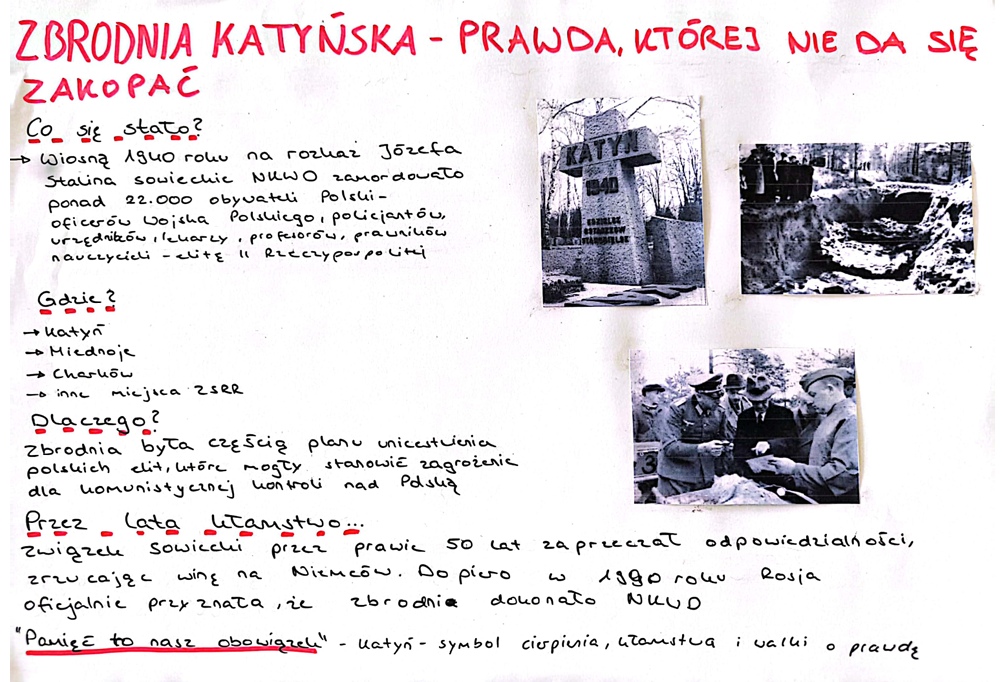 ZBRODNIA KATYŃSKA - PRAWDA, KTÓREJ NIE DA SIĘ
ZAKOPAĆ
Co się stało?
→ Wiosną 1940 roku na rozkaz Józefa
Stalina sowieckie NKWD zamordowało
ponad 22.000 obywateli Polski-
oficerów Wojska Polskiego, policjantów,
urzędników, lekarzy, profesorów, prawników
nauczycieli - elitę II Rzeczypospolitej
KATYŃ
1940
Gdzie?
→ Katyń
→ Miednoje
→ Charków
→ inne miejsca ZSRR
Dlaczego?
Zbrodnia była częścią planu unicestwienia
polskich elit, które mogły stanowić zagrożenie
dla komunistycznej kontroli nad Polską
3
Przez lata kłamstwo...
Związek Sowiecki przez prawie 50 lat zaprzeczał odpowiedzialności,
zrzucając winę na Niemców. Dopiero w 1990 roku Rosja
oficjalnie przyznała, że zbrodnie dokonało NKWD
"Pamięć to nasz obowiązek" - Katyń - symbol cierpienia, kłamstwa i walki o prawdę